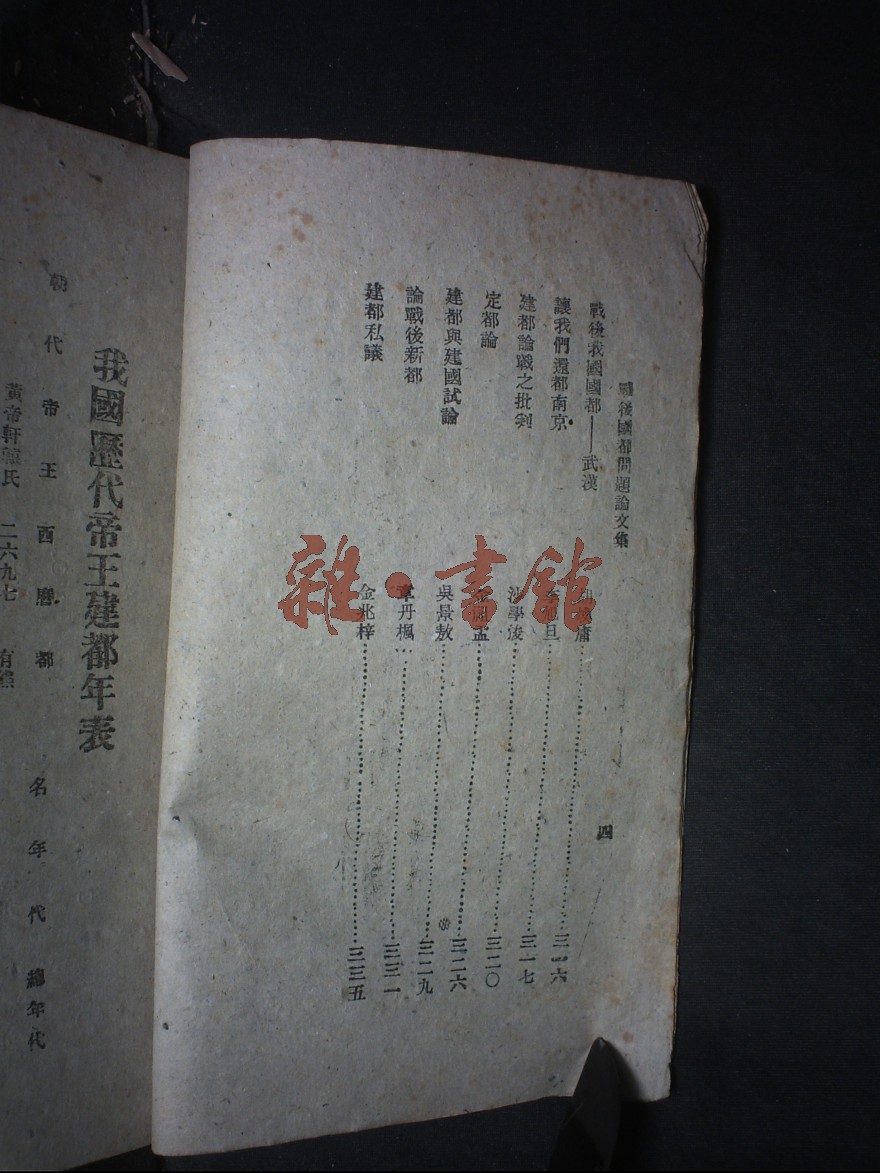 戰後國都問題論文集
四
戰後我國國都——武漢
庸……三一六
讓我們還都南京
旦……三一七
建都論戰之批判
沙學浚……三二〇
定都論
孟……三二六
建都與建國試論
吳景敖……三二九
論戰後新都
章丹楓……三三一
建都私議
金兆梓……三三五
我國歷代帝王建都年表
朝代帝王西曆都名年代總年代
黃帝軒轅氏 二六九七 有熊
雜·書館